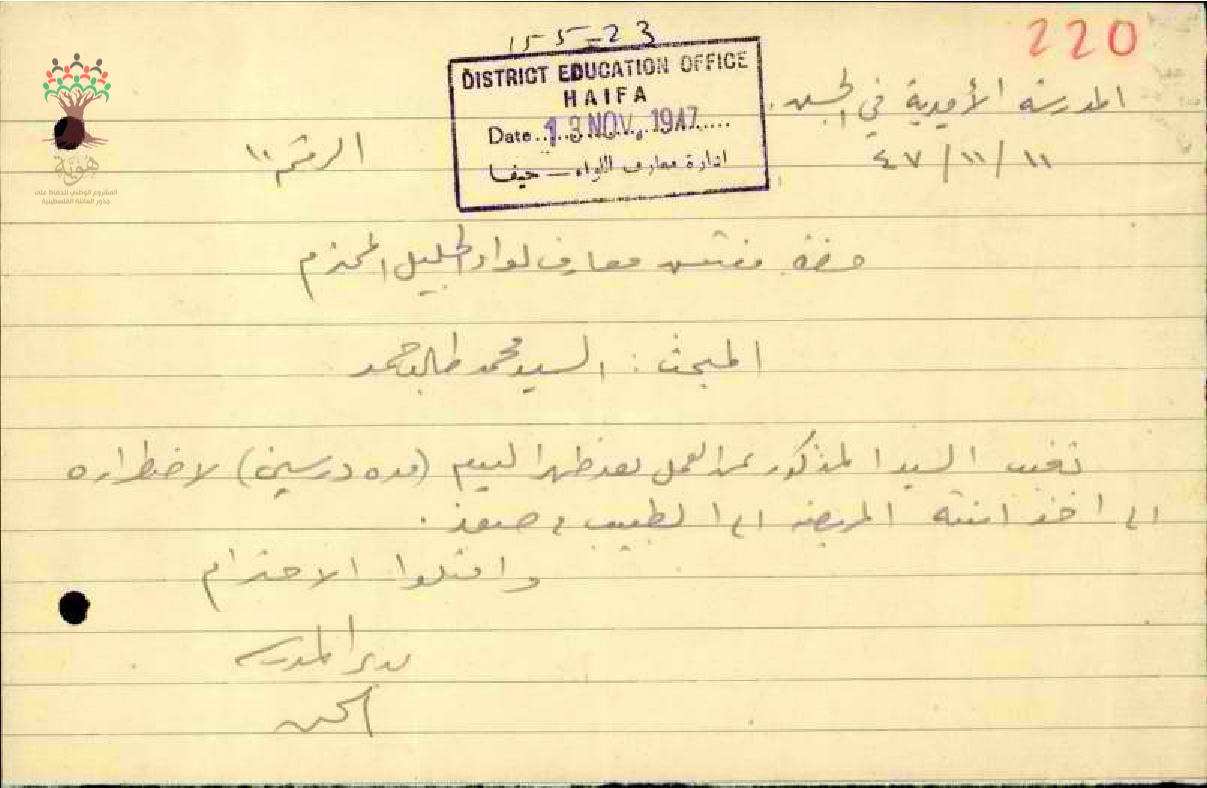 220
15-5-23
DISTRICT EDUCATION OFFICE
HAIFA
Date 13 NOV. 1947
ادارة معارف اللواء — حيفا
المدرسة الأميرية في الجش
١١/١١/٤٧
الرقم ١٠
هوية
المشروع الوطني للحفاظ على
جذور العائلة الفلسطينية
حضرة مفتش معارف لواء الجليل المحترم
المبحث : السيد محمد طالب حمد
تغيب السيد المذكور عن العمل بعد ظهر اليوم (مده درسين) لاضطراره
الى اخذ ابنته المريضه الى الطبيب في صفد .
واقبلوا الاحترام
مدير المدرسه